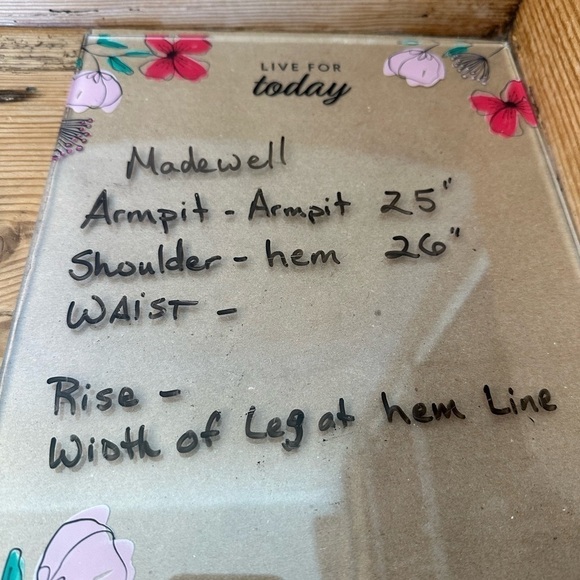 LIVE FOR
today
Madewell
Armpit - Armpit 25"
Shoulder - hem 26"
WAIST -
Rise -
Width of Leg at hem Line